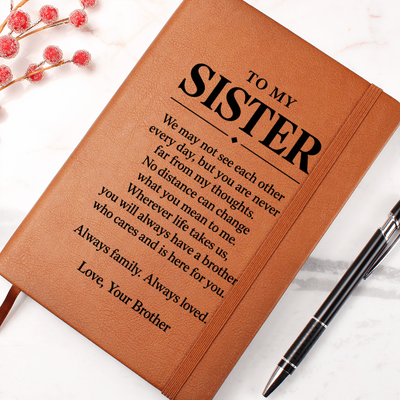 TO MY
SISTER
We may not see each other
every day, but you are never
far from my thoughts.
No distance can change
what you mean to me.
Wherever life takes us,
you will always have a brother
who cares and is here for you.
Always family. Always loved.
Love, Your Brother